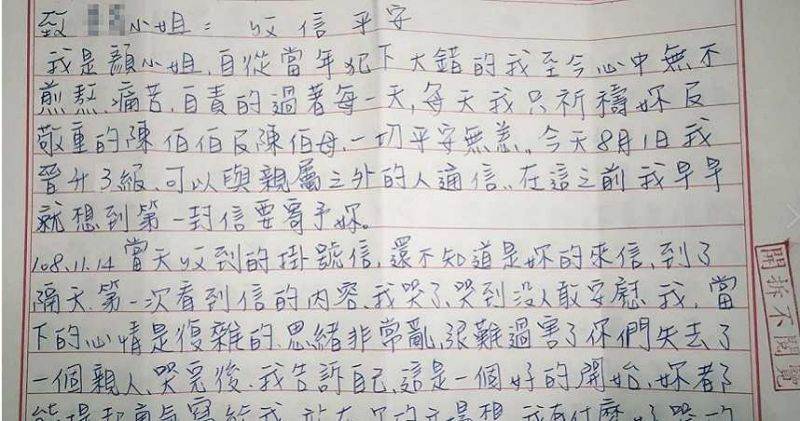 致 小姐：收信平安
我是顏小姐,自從當年犯下大錯的我至今心中無不
煎熬、痛苦、自責的過著每一天,每天我只祈禱妳及
敬重的陳伯伯及陳伯母,一切平安無恙,今天8月1日我
晉升3級,可以與親屬之外的人通信,在這之前我早早
就想到第一封信要寄予妳。
108.11.14當天收到的掛號信,還不知道是妳的來信,到了
隔天第一次看到信的內容,我哭了,哭到没人敢安慰我,當
下的心情是復雜的,思緒非常亂,很難過害了你們失去了
一個親人,哭完後,我告訴自己,這是一個好的開始,妳都
能提起勇氣寫給我,站在 的立場想,我有什麼好哭的
開拆不閱覽